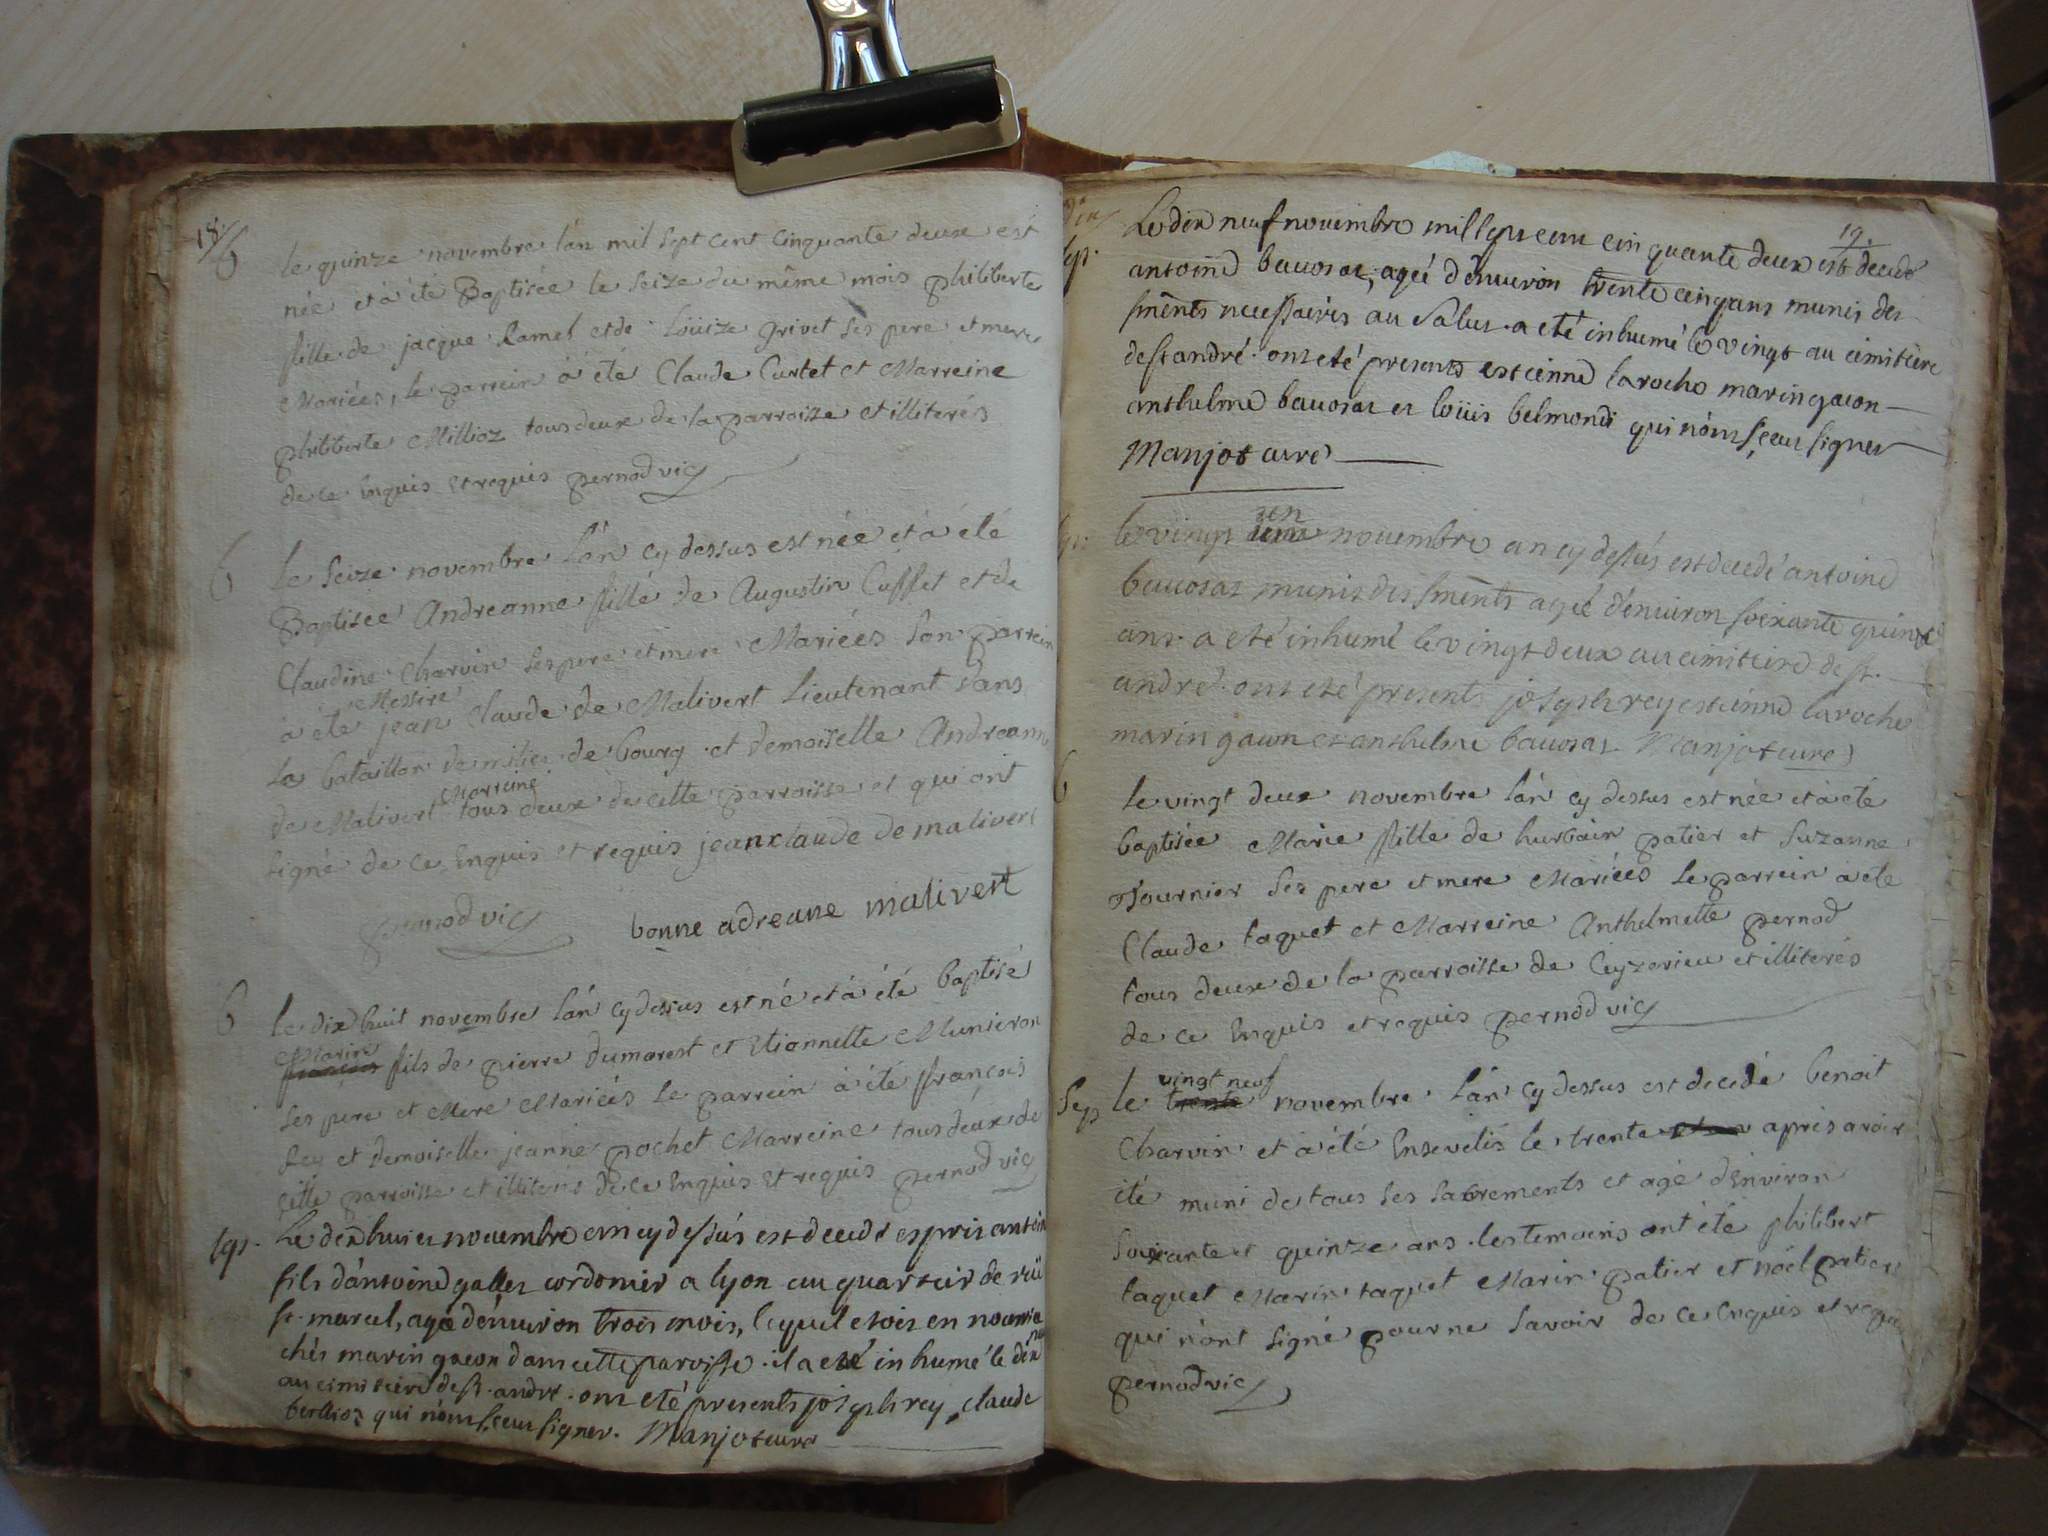 18
B le quinze novembre l'an mil sept cent cinquante deux est
née et à été Baptisée le seize du même mois philiberte
fille de jacque Ramel et de Loüize Grivet ses pere et mere
Mariées, le parrein à été Claude Curtet et Marreine
philiberte Millioz tous deux de la parroisse et illiterés
de ce Enquis et requis pernod vic
B Le seize novembre l'an cy dessus est née et à été
Baptisée Andreanne fille de Augustin Cuffet et de
Claudine Charvin ses pere et mere Mariées son parrein
à été Messire jean Claude de Malivert Lieutenant dans
le bataillon de milice de bourg et demoiselle Andreanne
de Malivert Marreine tous deux de cette parroisse et qui ont
signé de ce Enquis et requis jean claude de malivert
pernod vic bonne adreane malivert
B le dix huit novembre l'an cy dessus est né et à été baptisé
Marin françois fils de pierre dumarest et Etiennette Munieron
ses pere et Mere Mariées le parrein à été françois
Rey et demoiselle jeanne pochet Marreine tous deux de
cette parroisse et illiterés de ce Enquis et requis pernod vic
sep. Le dix huict novembre an cy dessus est decedé esprit antoine
fils d'antoine galles cordonier a lyon au quartier de rüe
st. marcel, agé d'enuiron trois mois, lequel etoit en nourrice
chés marin gacon dans cette paroisse. il a eté inhumé le dix neuf
au cimitiere de st. andré. ont eté presents joseph rey, claude
berllioz qui n'ont sceu signer. Manjot curé
19
sep. Le dix neuf nouembre mil sept cent cinquante deux est decedé
antoine bauosat, agé d'enuiron trente cinq ans munis des
sments necessaires au salut. a eté inhumé le vingt au cimitiere
de st andré. ont eté presents estienne laroche marin gacon
anthelme bauosat et loüis belmond qui n'ont sceu signer
Manjot curé
sep. le vingt un nouembre an cy dessus est decedé antoine
bauosat munis des sments agé d'enuiron soixante quinze
ans. a eté inhumé le vingt deux au cimitiere de st.
andré. ont eté presents joseph rey estienne laroche
marin gacon et anthelme bauosat Manjot curé
B le vingt deux novembre l'an cy dessus est née et à été
baptisée Marie fille de hurbain patier et Suzanne
fournier ses pere et mere Mariées le parrein à été
Claude taquet et Marreine Anthelmette pernod
tous deux de la parroisse de Ceyzerieu et illiterés
de ce Enquis et requis pernod vic
Sep le trente vingt neuf novembre l'an cy dessus est decedé benoit
Charvin et à été Ensevelis le trente après avoir
été muni de tous ses sacrements et agé d'Environ
soixante et quinze ans. les temoins ont été philibert
taquet Marin taquet Marin patier et noël patier
qui n'ont signé pour ne savoir de ce Enquis et requis
pernod vic